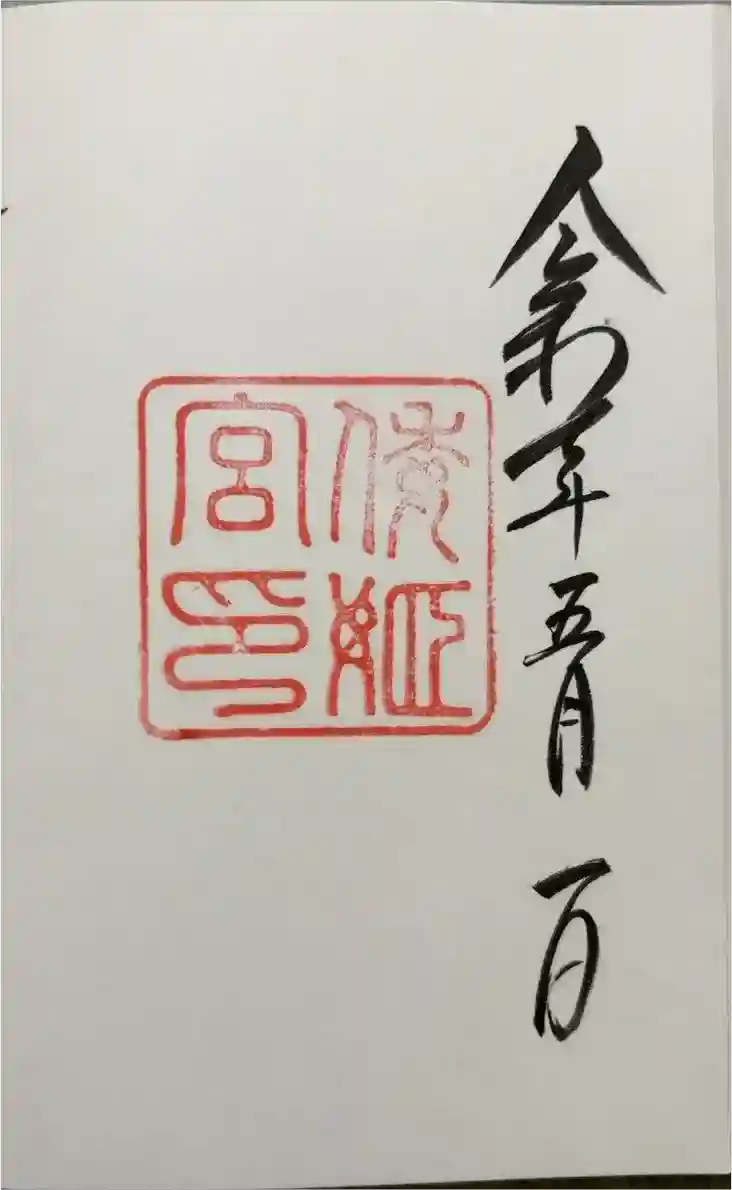 令和元年五月一日
倭姫
宮印